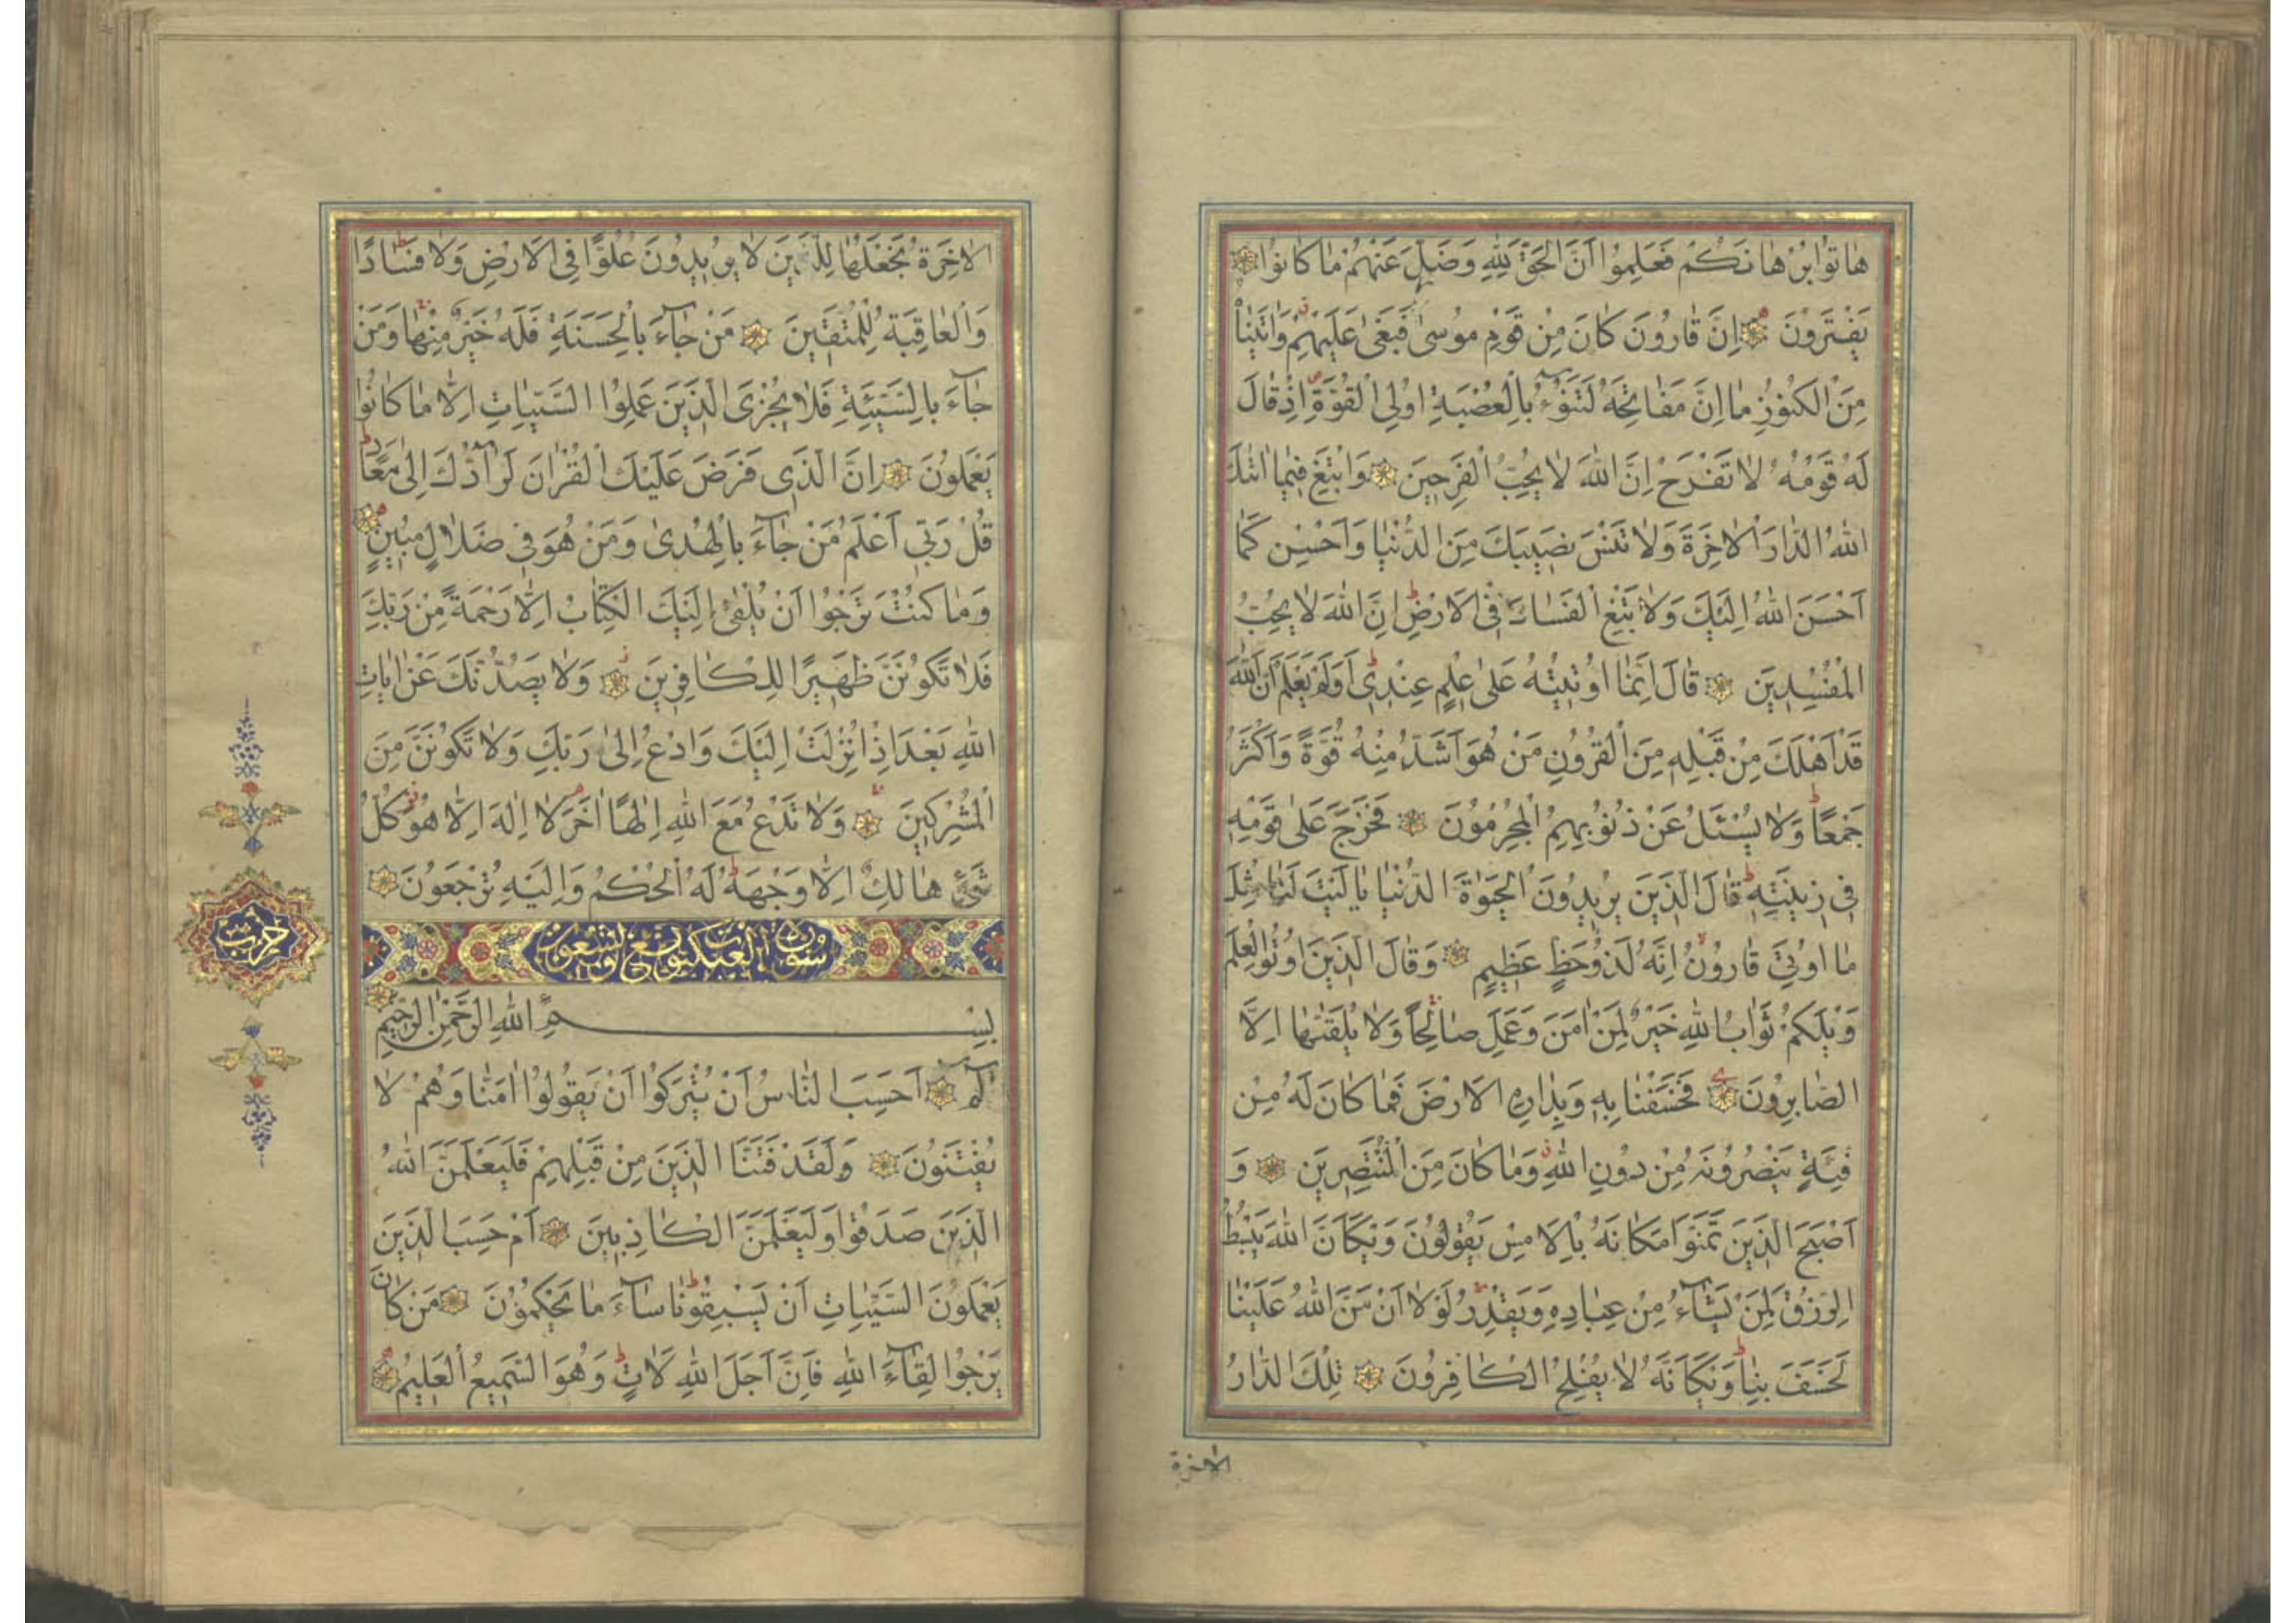 هَاتُوا بُرْهَانَكُمْ فَعَلِمُوا اَنَّ الْحَقَّ لِلّٰهِ وَضَلَّ عَنْهُمْ مَا كَانُوا
يَفْتَرُونَ اِنَّ قَارُونَ كَانَ مِنْ قَوْمِ مُوسٰى فَبَغٰى عَلَيْهِمْ وَاٰتَيْنَاهُ
مِنَ الْكُنُوزِ مَا اِنَّ مَفَاتِحَهُ لَتَنُوءُ بِالْعُصْبَةِ اُولِى الْقُوَّةِ اِذْ قَالَ
لَهُ قَوْمُهُ لَا تَفْرَحْ اِنَّ اللّٰهَ لَا يُحِبُّ الْفَرِحِينَ وَابْتَغِ فِيمَا اٰتٰكَ
اللّٰهُ الدَّارَ الْاٰخِرَةَ وَلَا تَنْسَ نَصِيبَكَ مِنَ الدُّنْيَا وَاَحْسِنْ كَمَا
اَحْسَنَ اللّٰهُ اِلَيْكَ وَلَا تَبْغِ الْفَسَادَ فِى الْاَرْضِ اِنَّ اللّٰهَ لَا يُحِبُّ
الْمُفْسِدِينَ قَالَ اِنَّمَا اُوتِيتُهُ عَلٰى عِلْمٍ عِنْدِى اَوَلَمْ يَعْلَمْ اَنَّ اللّٰهَ
قَدْ اَهْلَكَ مِنْ قَبْلِهِ مِنَ الْقُرُونِ مَنْ هُوَ اَشَدُّ مِنْهُ قُوَّةً وَاَكْثَرُ
جَمْعًا وَلَا يُسْئَلُ عَنْ ذُنُوبِهِمُ الْمُجْرِمُونَ فَخَرَجَ عَلٰى قَوْمِهِ
فِى زِينَتِهِ قَالَ الَّذِينَ يُرِيدُونَ الْحَيٰوةَ الدُّنْيَا يَا لَيْتَ لَنَا مِثْلَ
مَا اُوتِىَ قَارُونُ اِنَّهُ لَذُو حَظٍّ عَظِيمٍ وَقَالَ الَّذِينَ اُوتُوا الْعِلْمَ
وَيْلَكُمْ ثَوَابُ اللّٰهِ خَيْرٌ لِمَنْ اٰمَنَ وَعَمِلَ صَالِحًا وَلَا يُلَقّٰيهَا اِلَّا
الصَّابِرُونَ فَخَسَفْنَا بِهِ وَبِدَارِهِ الْاَرْضَ فَمَا كَانَ لَهُ مِنْ
فِئَةٍ يَنْصُرُونَهُ مِنْ دُونِ اللّٰهِ وَمَا كَانَ مِنَ الْمُنْتَصِرِينَ وَ
اَصْبَحَ الَّذِينَ تَمَنَّوْا مَكَانَهُ بِالْاَمْسِ يَقُولُونَ وَيْكَاَنَّ اللّٰهَ يَبْسُطُ
الرِّزْقَ لِمَنْ يَشَاءُ مِنْ عِبَادِهِ وَيَقْدِرُ لَوْلَا اَنْ مَنَّ اللّٰهُ عَلَيْنَا
لَخَسَفَ بِنَا وَيْكَاَنَّهُ لَا يُفْلِحُ الْكَافِرُونَ تِلْكَ الدَّارُ
الاخرة
الْاٰخِرَةُ نَجْعَلُهَا لِلَّذِينَ لَا يُرِيدُونَ عُلُوًّا فِى الْاَرْضِ وَلَا فَسَادًا
وَالْعَاقِبَةُ لِلْمُتَّقِينَ مَنْ جَاءَ بِالْحَسَنَةِ فَلَهُ خَيْرٌ مِنْهَا وَمَنْ
جَاءَ بِالسَّيِّئَةِ فَلَا يُجْزَى الَّذِينَ عَمِلُوا السَّيِّئَاتِ اِلَّا مَا كَانُوا
يَعْمَلُونَ اِنَّ الَّذِى فَرَضَ عَلَيْكَ الْقُرْاٰنَ لَرَادُّكَ اِلٰى مَعَادٍ
قُلْ رَبِّى اَعْلَمُ مَنْ جَاءَ بِالْهُدٰى وَمَنْ هُوَ فِى ضَلَالٍ مُبِينٍ
وَمَا كُنْتَ تَرْجُوا اَنْ يُلْقٰى اِلَيْكَ الْكِتَابُ اِلَّا رَحْمَةً مِنْ رَبِّكَ
فَلَا تَكُونَنَّ ظَهِيرًا لِلْكَافِرِينَ وَلَا يَصُدُّنَّكَ عَنْ اٰيَاتِ
اللّٰهِ بَعْدَ اِذْ اُنْزِلَتْ اِلَيْكَ وَادْعُ اِلٰى رَبِّكَ وَلَا تَكُونَنَّ مِنَ
الْمُشْرِكِينَ وَلَا تَدْعُ مَعَ اللّٰهِ اِلٰهًا اٰخَرَ لَا اِلٰهَ اِلَّا هُوَ كُلُّ
شَىْءٍ هَالِكٌ اِلَّا وَجْهَهُ لَهُ الْحُكْمُ وَاِلَيْهِ تُرْجَعُونَ
سورة العنكبوت تسع وستون
بِسْمِ اللّٰهِ الرَّحْمٰنِ الرَّحِيمِ
حزب
الٓمٓ اَحَسِبَ النَّاسُ اَنْ يُتْرَكُوا اَنْ يَقُولُوا اٰمَنَّا وَهُمْ لَا
يُفْتَنُونَ وَلَقَدْ فَتَنَّا الَّذِينَ مِنْ قَبْلِهِمْ فَلَيَعْلَمَنَّ اللّٰهُ
الَّذِينَ صَدَقُوا وَلَيَعْلَمَنَّ الْكَاذِبِينَ اَمْ حَسِبَ الَّذِينَ
يَعْمَلُونَ السَّيِّئَاتِ اَنْ يَسْبِقُونَا سَاءَ مَا يَحْكُمُونَ مَنْ كَانَ
يَرْجُوا لِقَاءَ اللّٰهِ فَاِنَّ اَجَلَ اللّٰهِ لَاٰتٍ وَهُوَ السَّمِيعُ الْعَلِيمُ